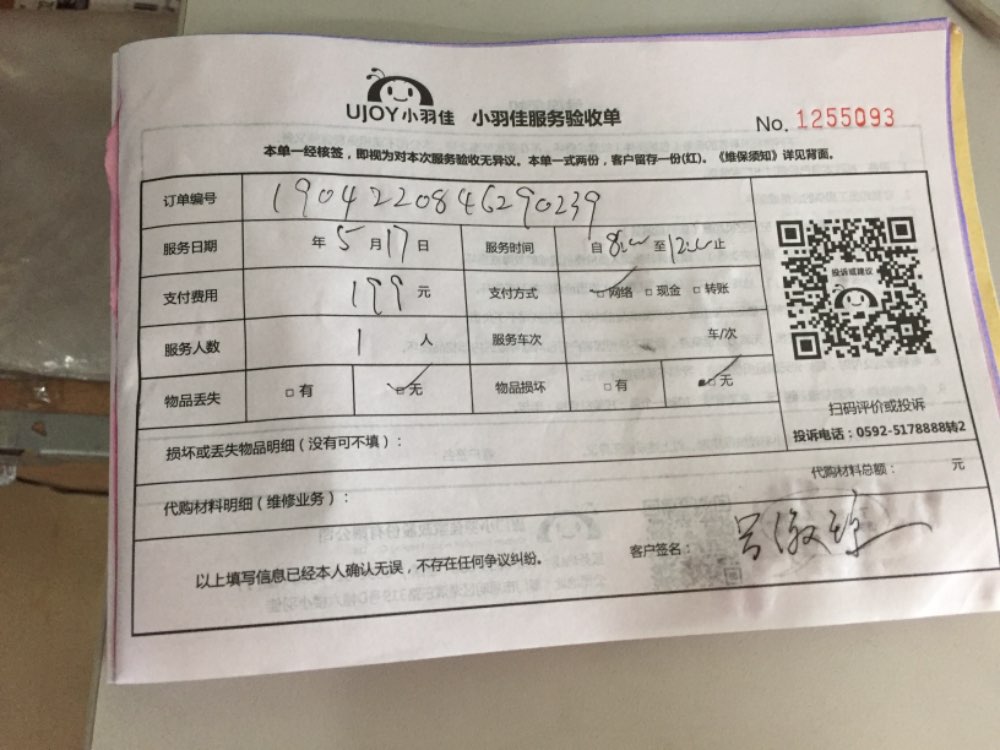 UJOY小羽佳 小羽佳服务验收单 No. 1255093
本单一经核签，即视为对本次服务验收无异议。本单一式两份，客户留存一份(红)。《维保须知》详见背面。
订单编号 1904220846290239
服务日期 年 5 月 17 日 服务时间 自 8:00 至 12:00 止
支付费用 199 元 支付方式 □网络 □现金 □转账
服务人数 1 人 服务车次 车/次
物品丢失 □有 □无 物品损坏 □有 □无
投诉或建议
扫码评价或投诉
投诉电话：0592-5178888转2
损坏或丢失物品明细（没有可不填）：
代购材料明细（维修业务）： 代购材料总额： 元
以上填写信息已经本人确认无误，不存在任何争议纠纷。 客户签名：